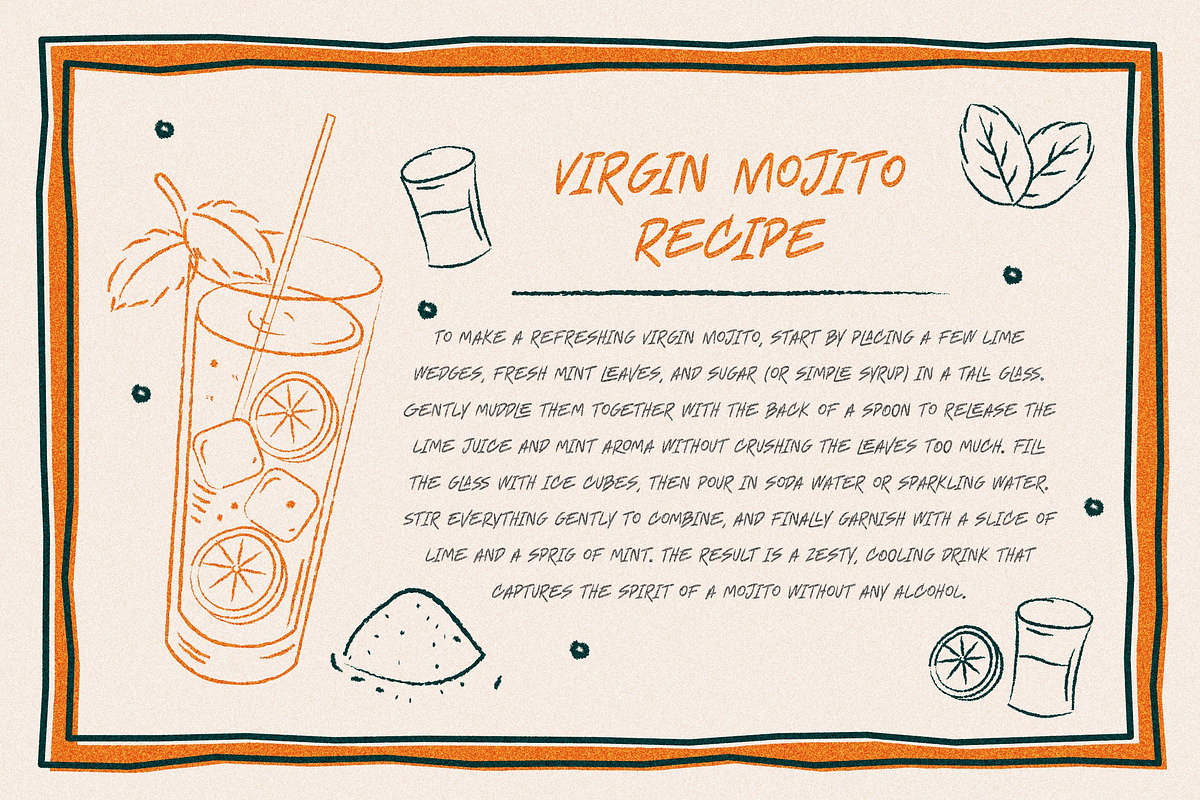 VIRGIN MOJITO
RECIPE
TO MAKE A REFRESHING VIRGIN MOJITO, START BY PLACING A FEW LIME
WEDGES, FRESH MINT LEAVES, AND SUGAR (OR SIMPLE SYRUP) IN A TALL GLASS.
GENTLY MUDDLE THEM TOGETHER WITH THE BACK OF A SPOON TO RELEASE THE
LIME JUICE AND MINT AROMA WITHOUT CRUSHING THE LEAVES TOO MUCH. FILL
THE GLASS WITH ICE CUBES, THEN POUR IN SODA WATER OR SPARKLING WATER.
STIR EVERYTHING GENTLY TO COMBINE, AND FINALLY GARNISH WITH A SLICE OF
LIME AND A SPRIG OF MINT. THE RESULT IS A ZESTY, COOLING DRINK THAT
CAPTURES THE SPIRIT OF A MOJITO WITHOUT ANY ALCOHOL.